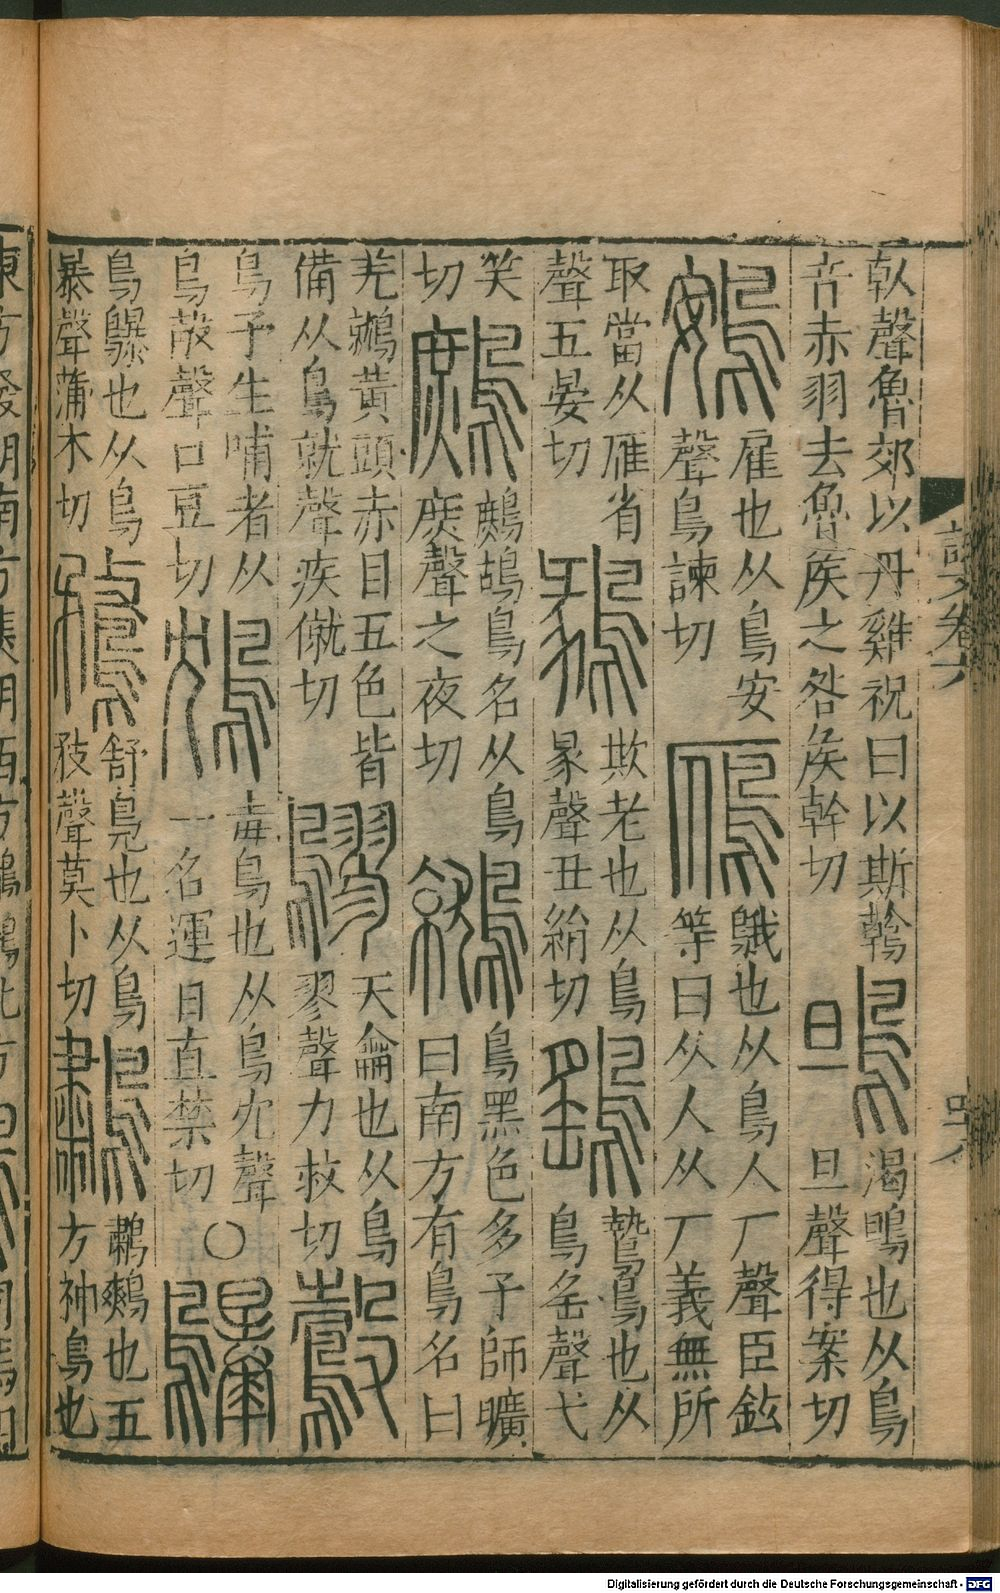 倝聲魯郊以丹雞祝曰以斯鶾
音赤羽去魯矦之咎矦幹切
鴠
渴鴠也从鳥
旦聲得案切
鴳
雇也从鳥安
聲烏諫切
鴈
鵝也从鳥人厂聲臣鉉
等曰从人从厂義無所
取當从雁省
聲五晏切
鶨
欺老也从鳥
彖聲丑絹切
鷂
鷙鳥也从
鳥䍃聲弋
笑
切
鷓
鷓鴣鳥名从鳥
庶聲之夜切
鷲
鳥黑色多子師曠
曰南方有鳥名曰
羌鷲黃頭赤目五色皆
備从鳥就聲疾僦切
鷚
天龠也从鳥
翏聲力救切
鷇
鳥子生哺者从
鳥㱿聲口豆切
鴆
毒鳥也从鳥冘聲
一名運日直禁切
○
鸔
鳥鸔也从鳥
暴聲蒲木切
鶩
舒鳧也从鳥
敄聲莫卜切
鷫
鷫鷞也五
方神鳥也
東方發明南方焦明西方鷫鷞北方
說文卷六
Digitalisierung gefördert durch die Deutsche Forschungsgemeinschaft - DFG